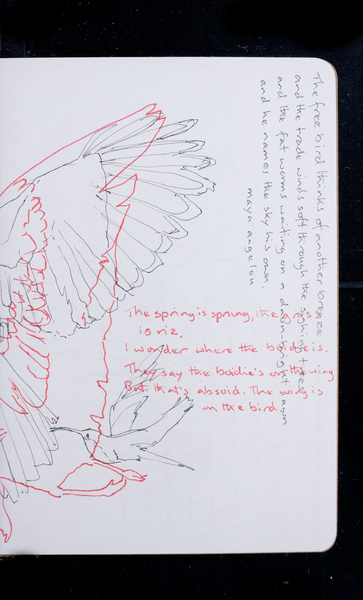 The free bird thinks of another breeze
and the trade winds soft through the sighing trees
and the fat worms waiting on a dawn bright lawn
and he names the sky his own.
maya angelou
The spring is sprung, the grass
is riz.
I wonder where the boidie is.
They say the boidie's on the wing
But that's absoid. The wing is
on the bird.